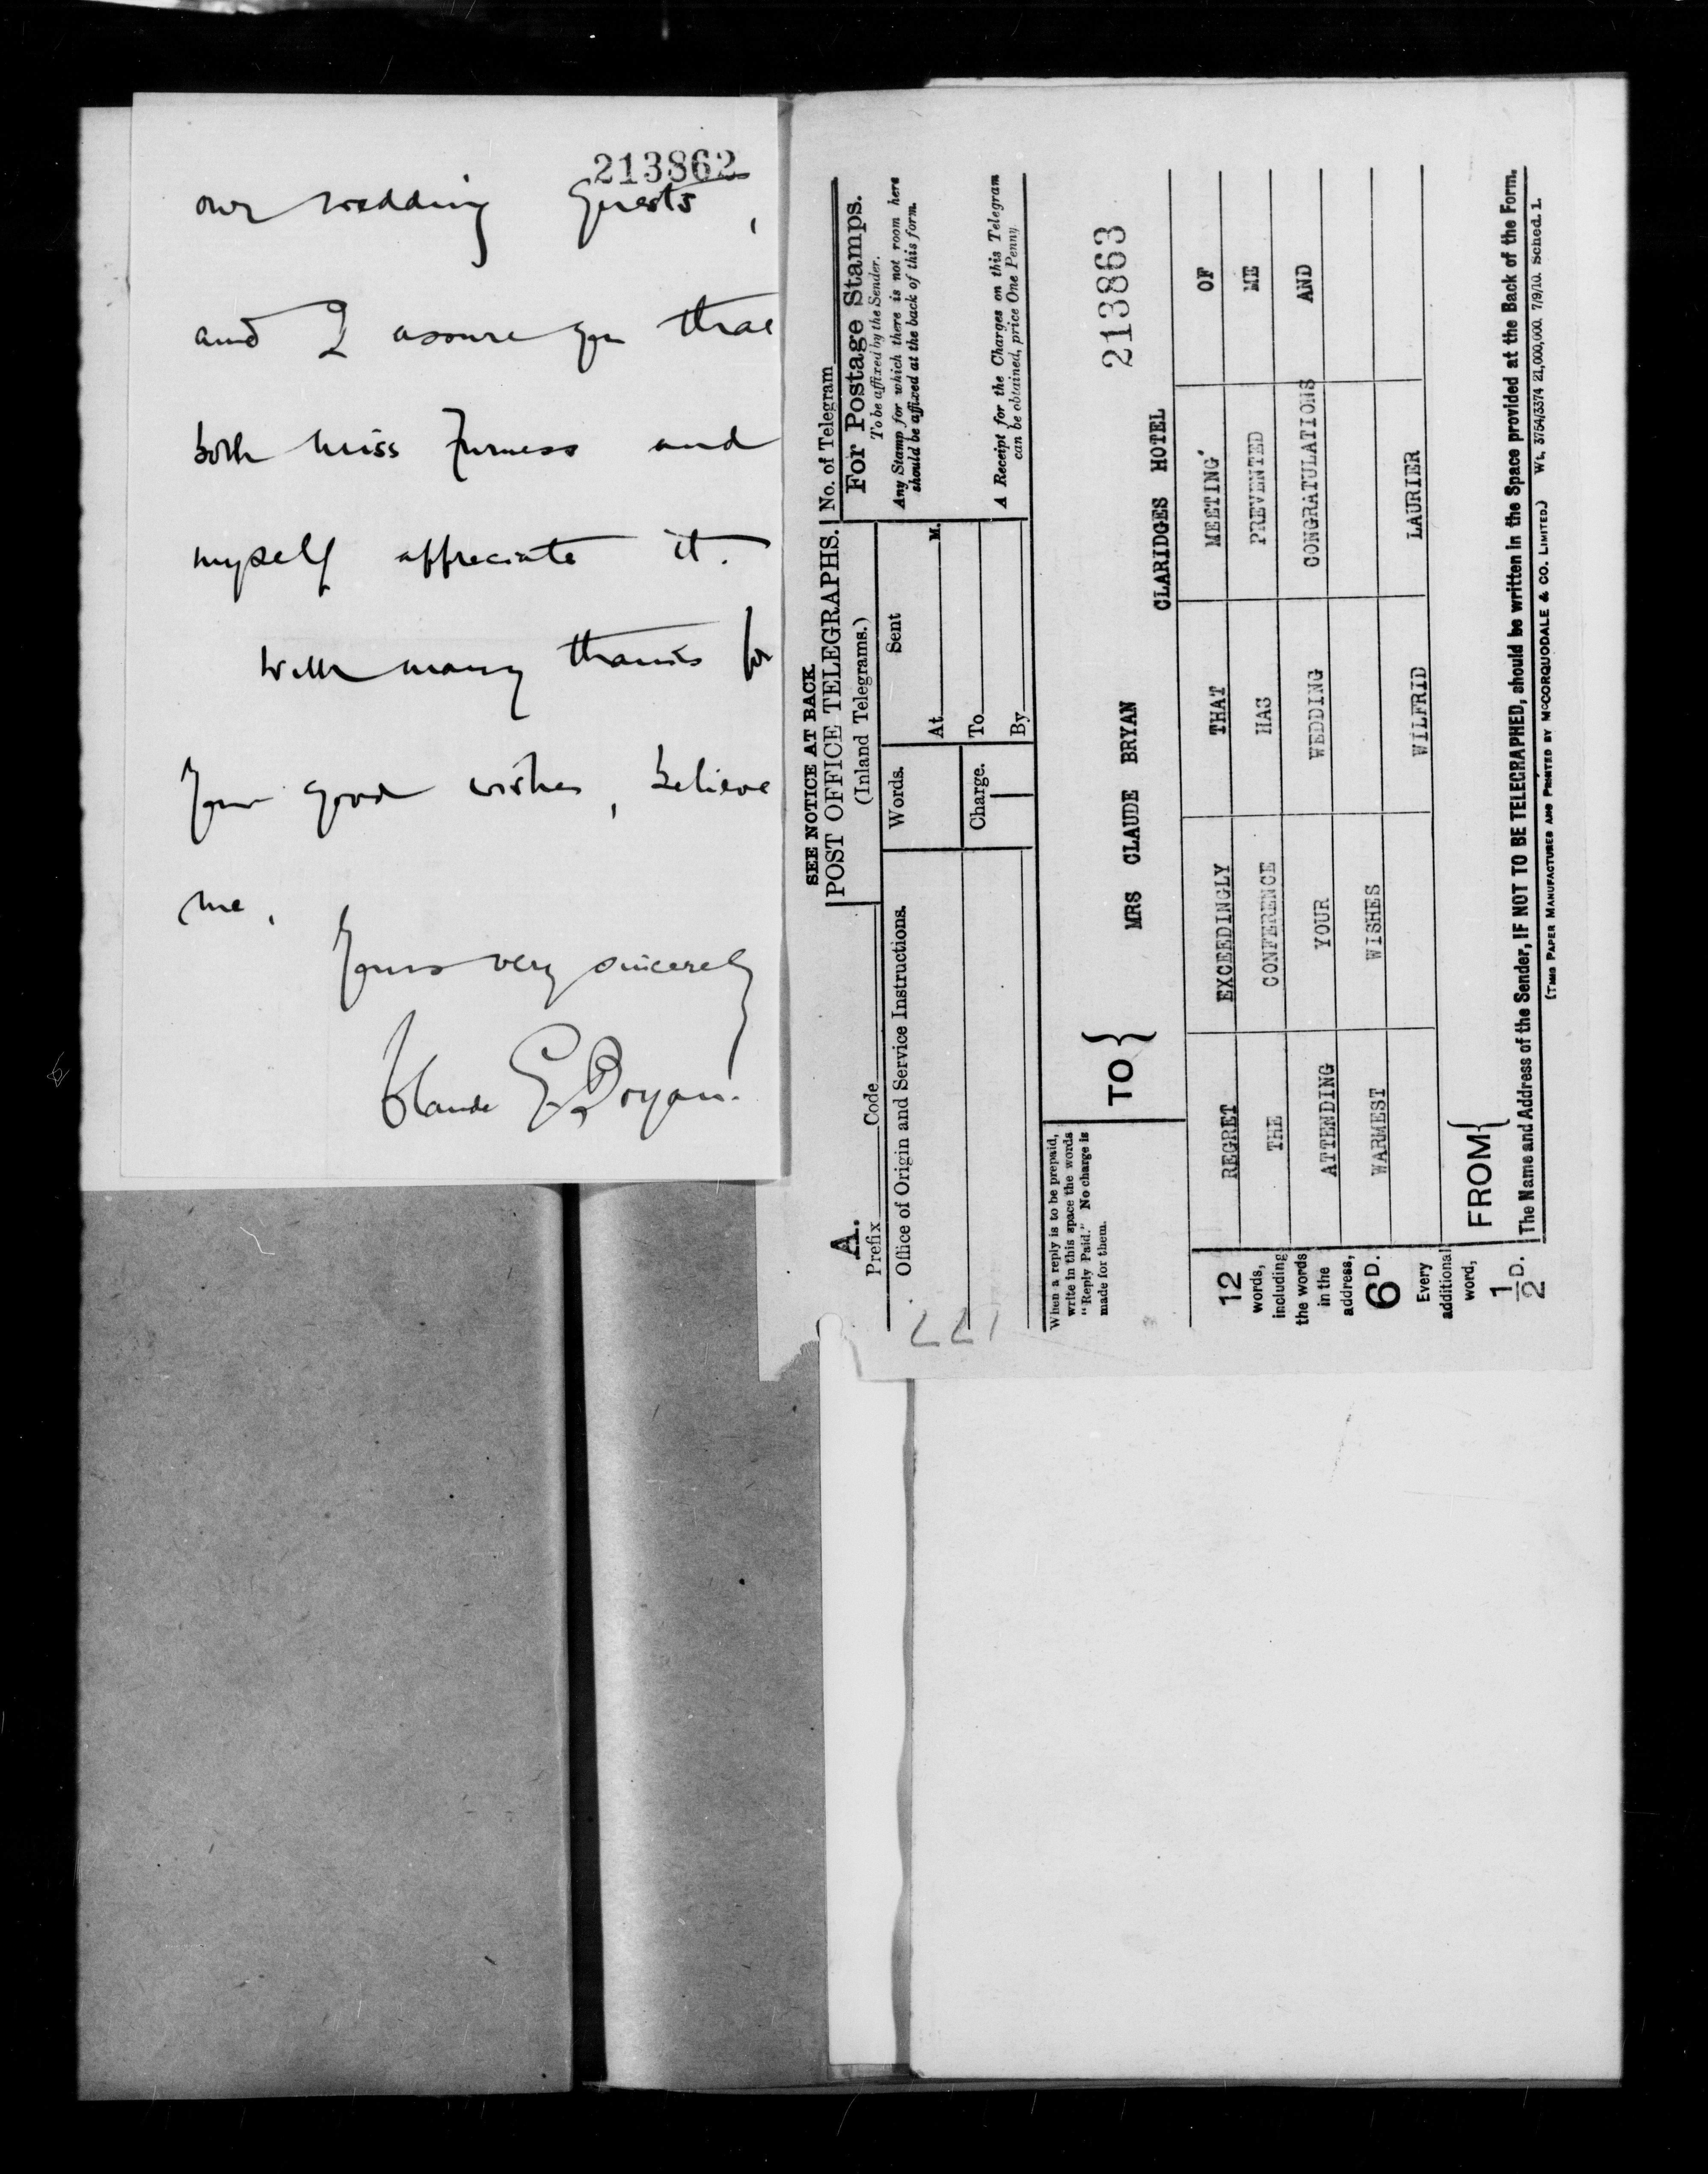 213862
our wedding guests,
and I assure you that
both Miss Furness and
myself appreciate it.
With many thanks for
your good wishes, believe
me,
Yours very sincerely
Claude G. Bryan.
SEE NOTICE AT BACK.
A.
POST OFFICE TELEGRAPHS.
(Inland Telegrams.)
No. of Telegram
Prefix Code
For Postage Stamps.
To be affixed by the Sender.
Any Stamp for which there is not room here
should be affixed at the back of this form.
A Receipt for the Charges on this Telegram
can be obtained, price One Penny
Office of Origin and Service Instructions.
Words.
Charge.
Sent
At M.
To
By
177
When a reply is to be prepaid,
write in this space the words
"Reply Paid." No charge is
made for them.
TO {
213863
MRS CLAUDE BRYAN
CLARIDGES HOTEL
REGRET EXCEEDINGLY THAT MEETING OF
THE CONFERENCE HAS PREVENTED ME
ATTENDING YOUR WEDDING CONGRATULATIONS AND
WARMEST WISHES
WILFRID LAURIER
12
words,
including
the words
in the
address,
6D.
Every
additional
word,
1/2 D.
FROM {
The Name and Address of the Sender, IF NOT TO BE TELEGRAPHED, should be written in the Space provided at the Back of the Form.
(This Paper Manufactured and Printed by McCorquodale & Co. Limited.) Wt. 3754/3374 21,000,000. 7/9/10. Sched. 1.